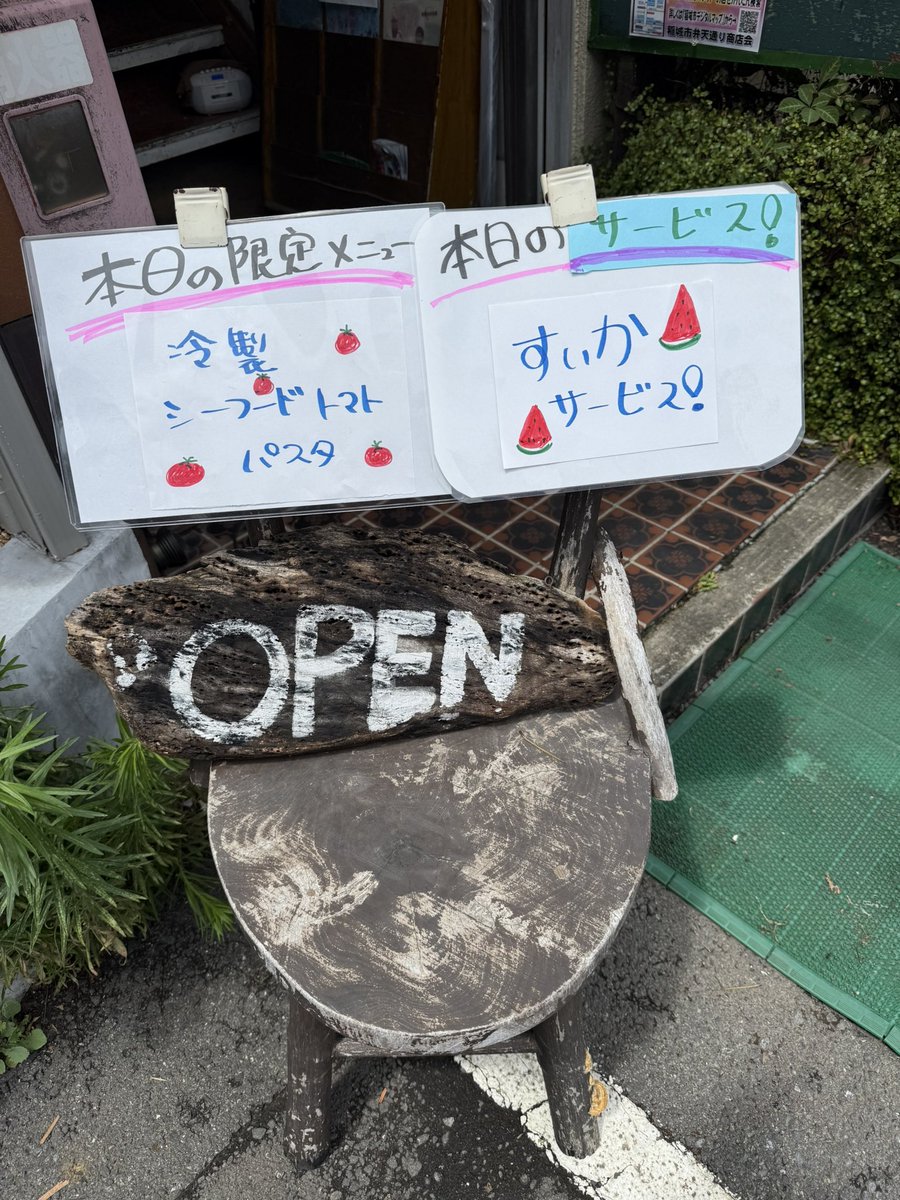 稲城市弁天通り商店会
本日の限定メニュー
冷製
シーフードトマト
パスタ
本日のサービス!
すいか
サービス!
OPEN